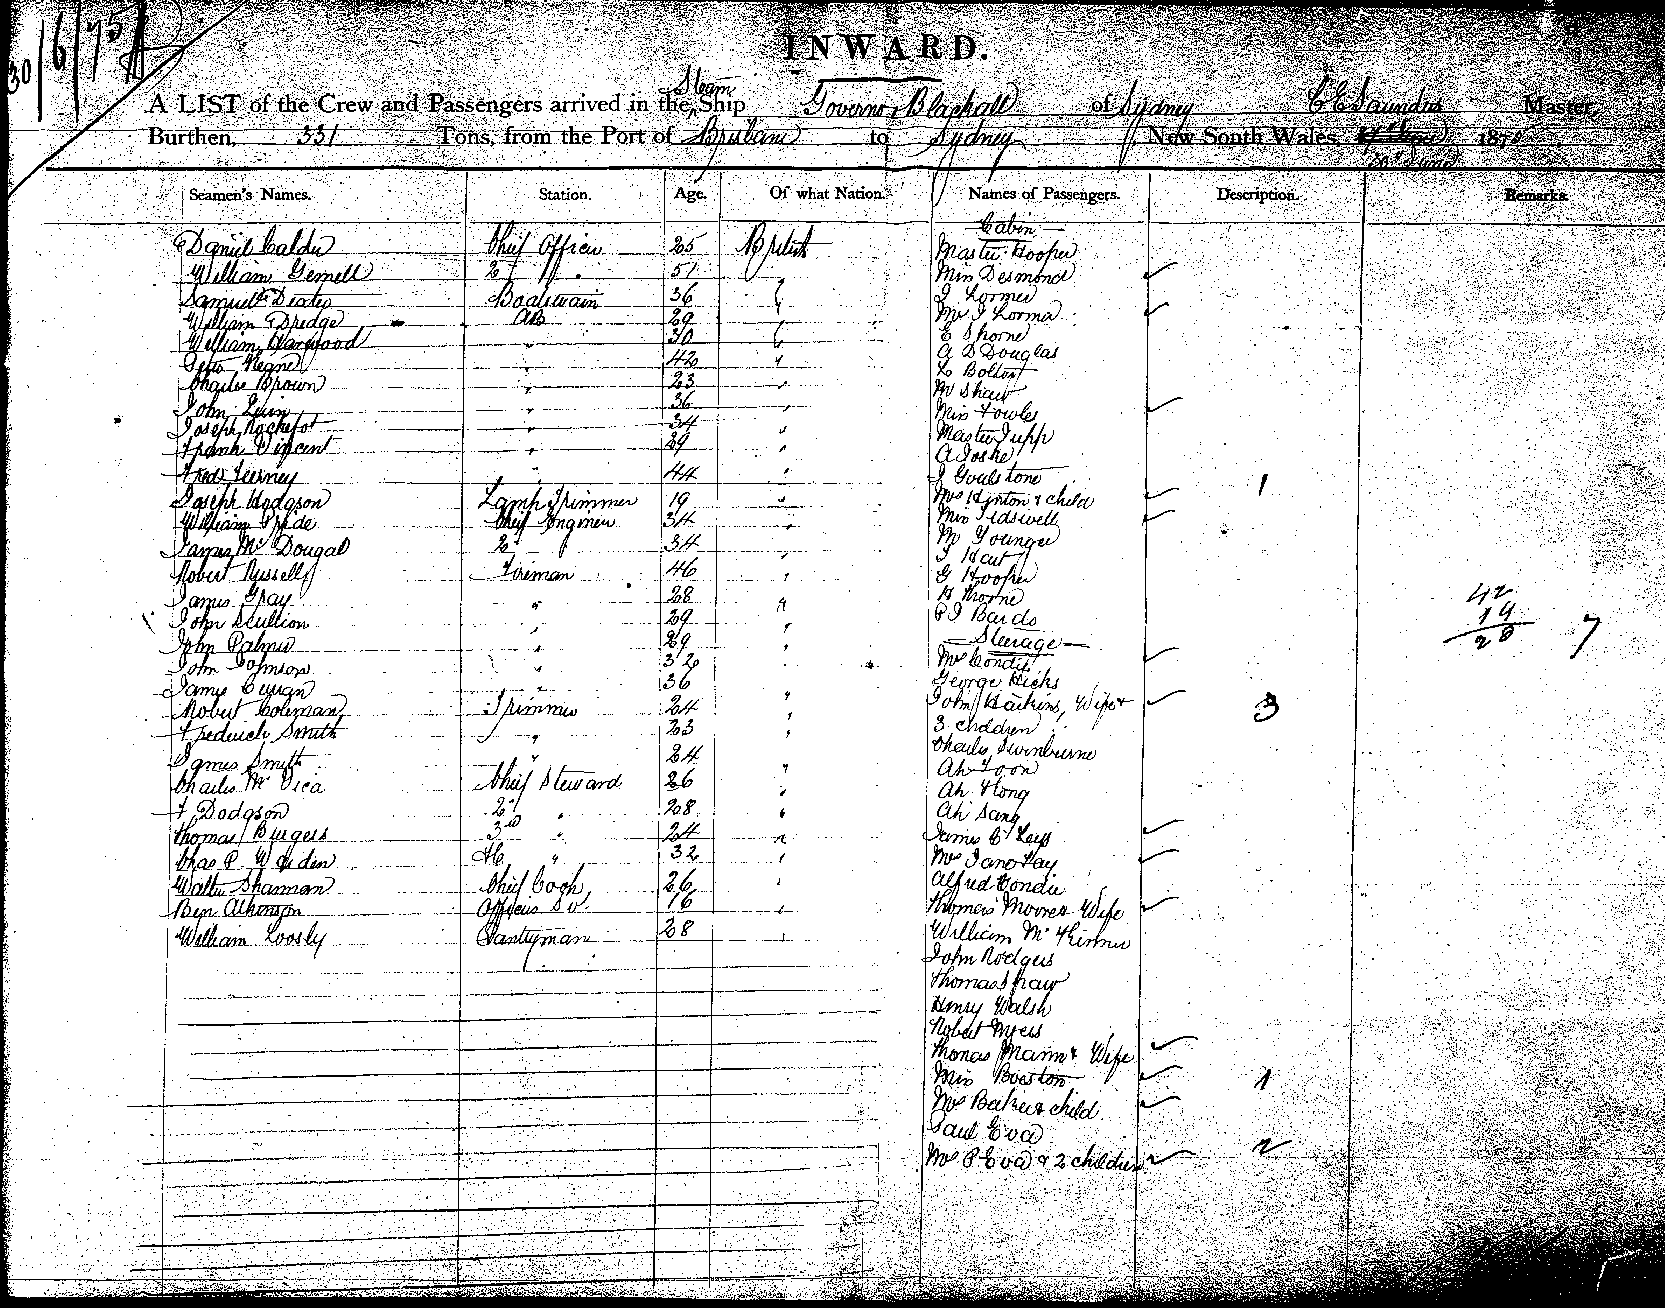 30/6/75
INWARD.
A LIST of the Crew and Passengers arrived in the Steam Ship Governor Blackall of Sydney C E Saunders Master,
Burthen, 331 Tons, from the Port of Brisbane to Sydney New South Wales, 1875
30th June
Seamen's Names. Station. Age. Of what Nation. Names of Passengers. Description. Remarks.
Cabin
Daniel Calder Chief Officer 25 British Master Hooper
William Gemell 2 " 51 " Miss Desmond
Samuel Dexter Boatswain 36 " J Lormer
William Dredge AB 29 " Mrs J Lorma
William Harwood " 30 " E Thorne
Keane " 42 " A D Douglas
Charles Brown " 23 " L Bolton
John " 36 " M Shaw
Joseph Rochfot " 34 " Miss Fowles
Frank Vincent " 29 " Master Jupp
A Joske
Fred Tierney " 44 " J Goulstone
Joseph Hodgson Lamp Trimmer 19 " Mrs Hinton & child 1
William Pride Chief Engineer 34 " Miss Tidswell
James McDougal 2 " 34 " M Younger
J Hart
Robert Russell Foreman 46 " G Hooper
James Gray " 28 " H Thorne
John Scullion " 29 " P J Bardo
42
14
28 7
John Palmer " 29 " Steerage
John Johnson " 32 " Mrs Condie
James Curran " 36 George Hicks
Robert Coleman Trimmer 24 " John Hawkins, Wife & 3
Frederick Smith " 23 " 3 children
James Smith " 24 Charles Swinburne
Charles McVica Chief Steward 26 " Ah Foon
Ah Hong
F Dodgson 2nd " 28 " Ah Sang
Thomas Burgess 3rd " 24 " James C Leys
Chas P Warden 4th " 32 " Mrs Jane Hay
Walter Shannan Chief Cook 26 " Alfred Condie
Ben Atkinson Officers Do 16 " Thomas Moore & Wife
William Loosly Pantryman 28 " William McKinner
John Rodgers
Thomas Shaw
Henry Walsh
Robert Myers
Thomas Mann & Wife
Miss Boeston 1
Mrs Baker & child
Paul Eva
Mrs P Eva & 2 children 2